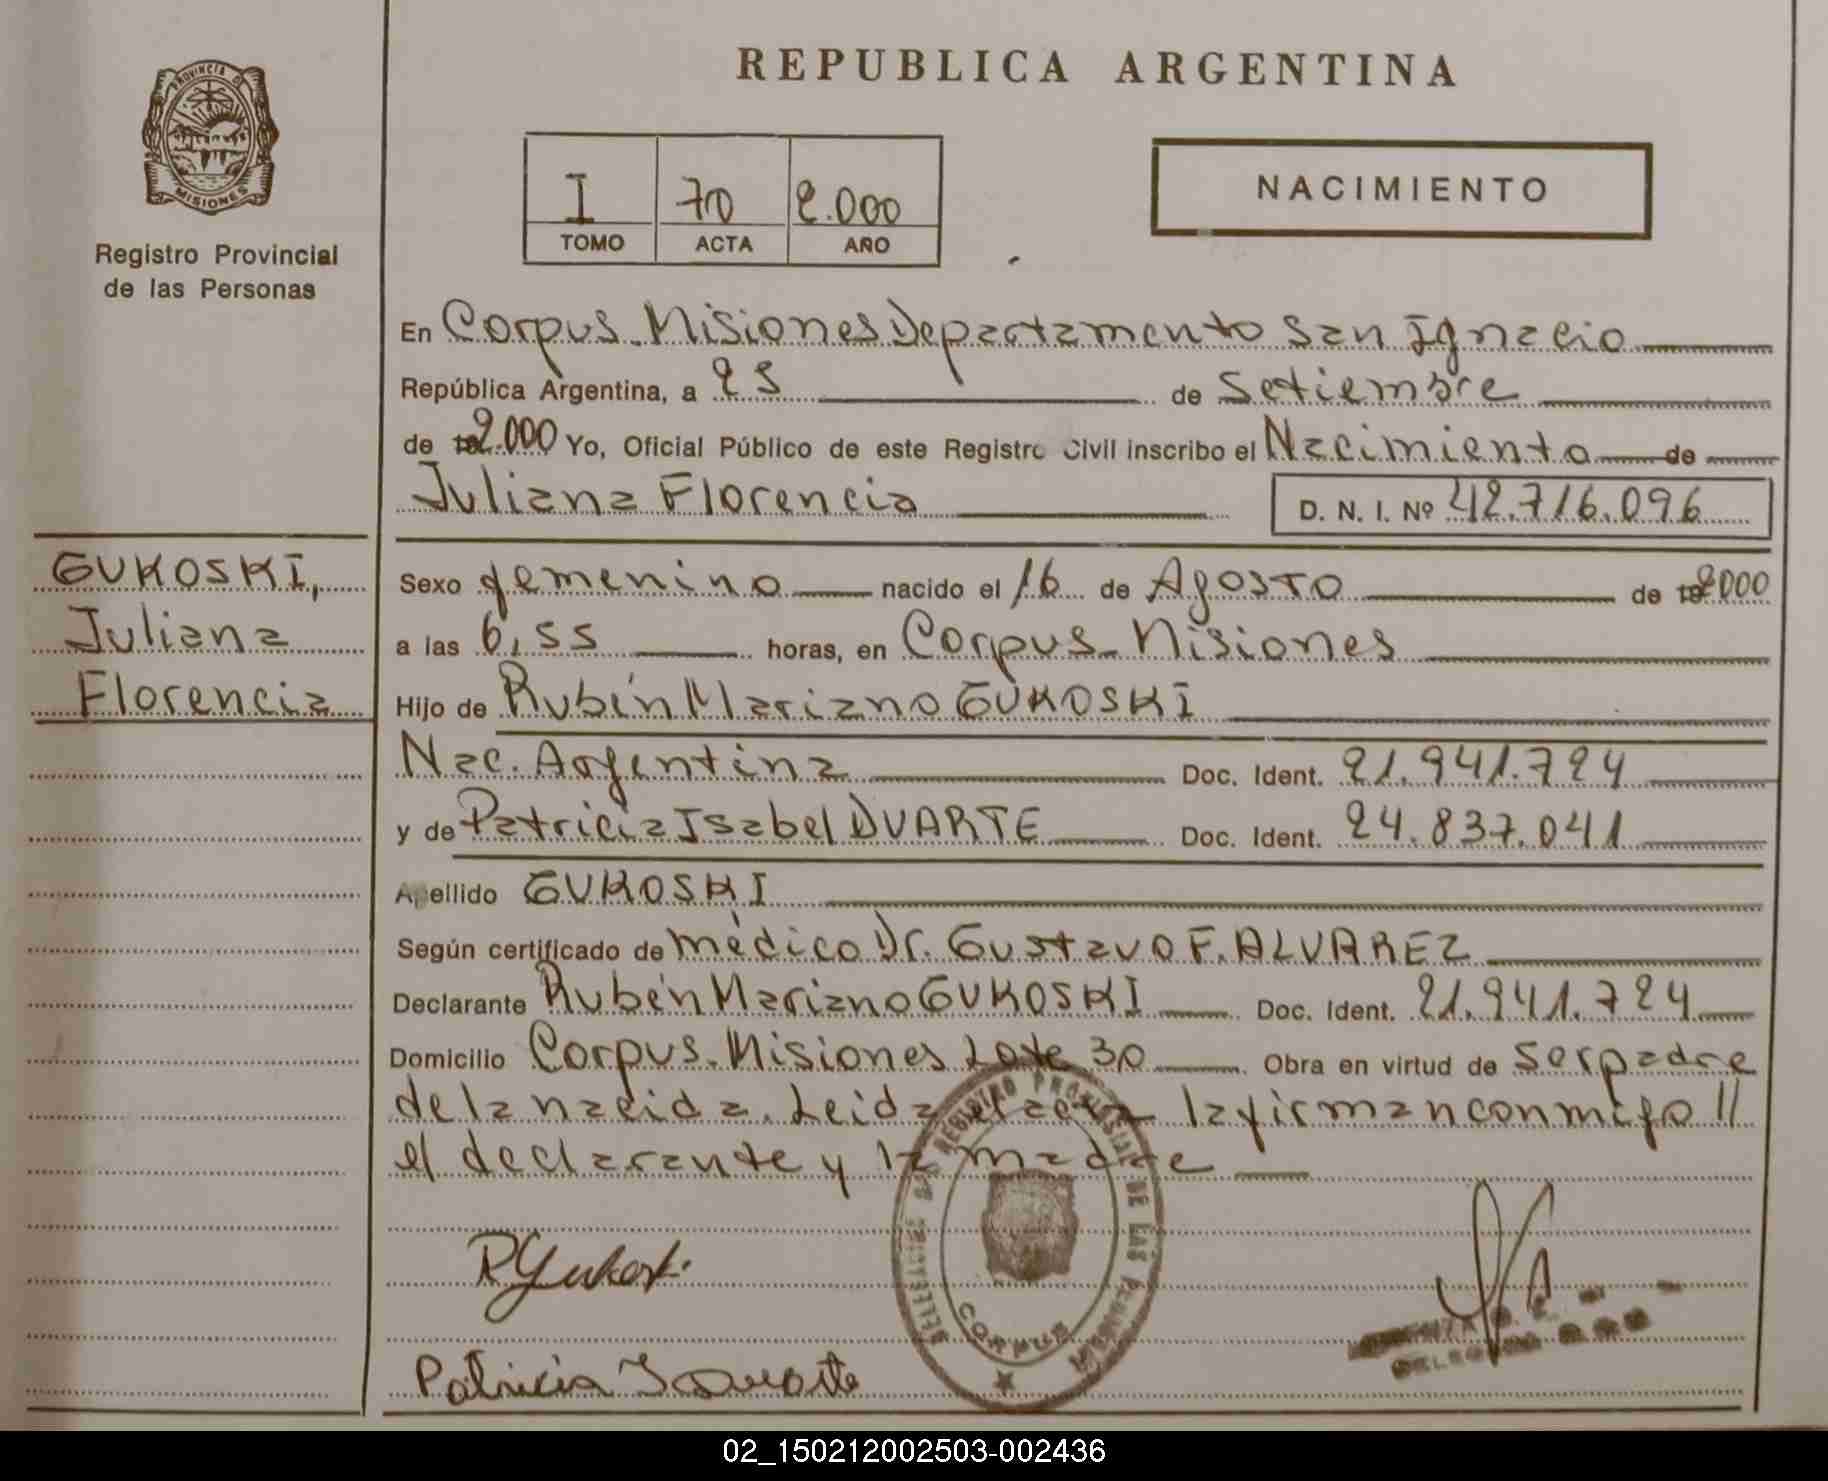 REPUBLICA ARGENTINA
PROVINCIA DE
MISIONES
Registro Provincial
de las Personas
I 70 2.000
TOMO ACTA AÑO
NACIMIENTO
En Corpus. Misiones Departamento San Ignacio
República Argentina, a 25 de Setiembre
de 2.000 Yo, Oficial Público de este Registro Civil inscribo el Nacimiento de
Juliana Florencia D. N. I. Nº 42.716.096
GUKOSKI,
Juliana
Florencia
Sexo femenino nacido el 16 de Agosto de 2000
a las 6,55 horas, en Corpus. Misiones
Hijo de Rubén Mariano GUKOSKI
Nac. Argentina Doc. Ident. 21.941.724
y de Patricia Isabel DUARTE Doc. Ident. 24.837.041
Apellido GUKOSKI
Según certificado de médico Dr. Gustavo F. ALVAREZ
Declarante Rubén Mariano GUKOSKI Doc. Ident. 21.941.724
Domicilio Corpus. Misiones Lote 30 Obra en virtud de ser padre
de la nacida. Leida el acta la firman conmigo //
el declarante y la madre
DELEGACION DEL REGISTRO PROVINCIAL DE LAS PERSONAS
CORPUS
MISIONES
R Gukoski
Patricia I Duarte
02_150212002503-002436